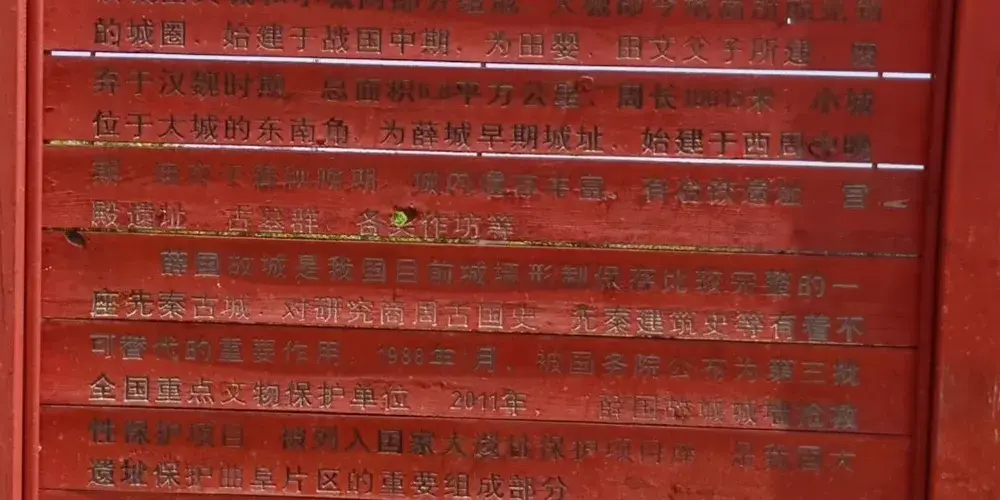 的城圈，始建于战国中期，为田婴、田文父子所建，废
弃于汉魏时期，总面积6.8平方公里，周长10615米，小城
位于大城的东南角，为薛城早期城址，始建于西周中晚
期，城内遗存丰富，有冶铁遗址、宫
殿遗址、古墓群、各类作坊等
薛国故城是我国目前城墙形制保存比较完整的一
座先秦古城，对研究商周古国史、先秦建筑史等有着不
可替代的重要作用，1988年1月，被国务院公布为第三批
全国重点文物保护单位，2011年，薛国故城城墙抢救
性保护项目，被列入国家大遗址保护项目库，是我国大
遗址保护曲阜片区的重要组成部分